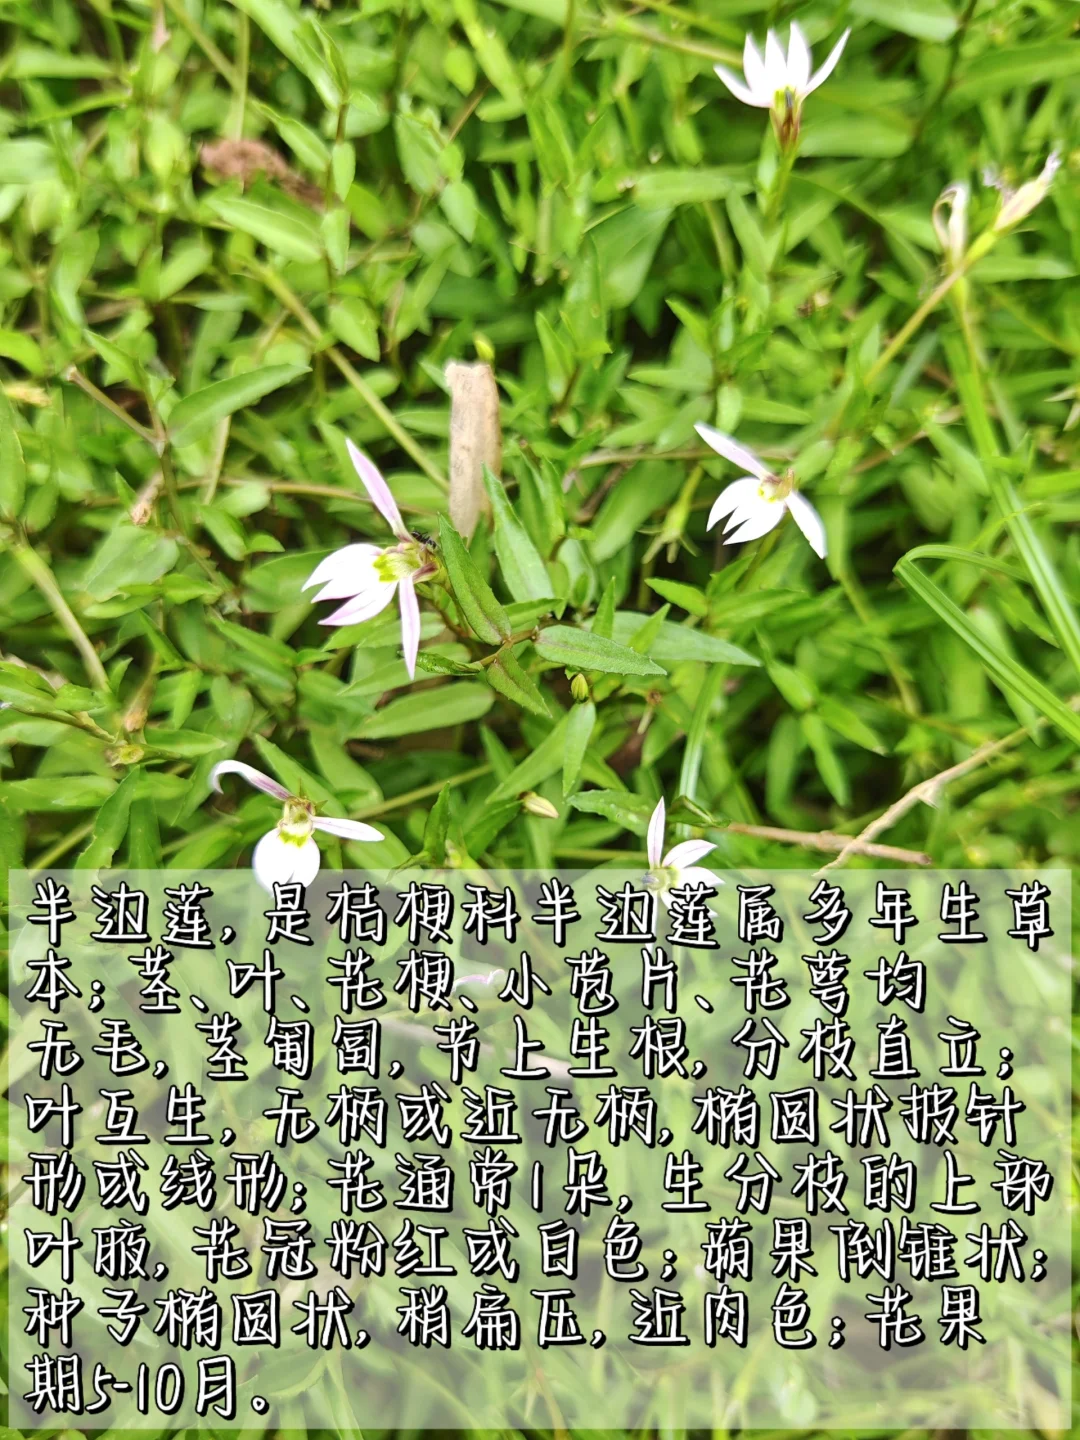 半边莲,是桔梗科半边莲属多年生草
本;茎、叶、花梗、小苞片、花萼均
无毛,茎匍匐,节上生根,分枝直立;
叶互生,无柄或近无柄,椭圆状披针
形或线形;花通常1朵,生分枝的上部
叶腋,花冠粉红或白色;蒴果倒锥状;
种子椭圆状,稍扁压,近肉色;花果
期5-10月。